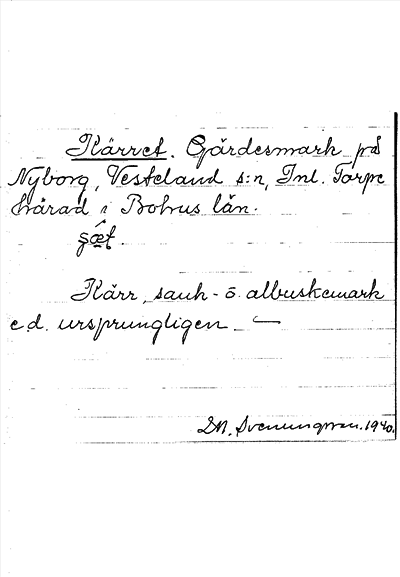 Kärret. Gärdesmark på
Nyborg, Vesteland s:n, Inl. Torpe
härad i Bohus län.
Kärr, sauk- o. albuskemark
e.d. ursprungligen.
1940.